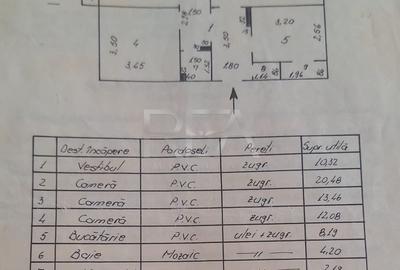 1,50
2,98
1
3,20
3,50
4
2,50
5
2,56
3,65
1,50
7
1,52
1,80
8
9
1,14
1,96
Dest. încăpere Pardoseli Pereți Supr utilă
1 Vestibul P.V.C. zugr. 10,32
2 Cameră P.V.C. zugr. 20,48
3 Cameră P.V.C. zugr. 13,46
4 Cameră P.V.C. zugr. 12,08
5 Bucătărie P.V.C. ulei + zugr. 8,19
6 Baie Mozaic — 11 — 4,20